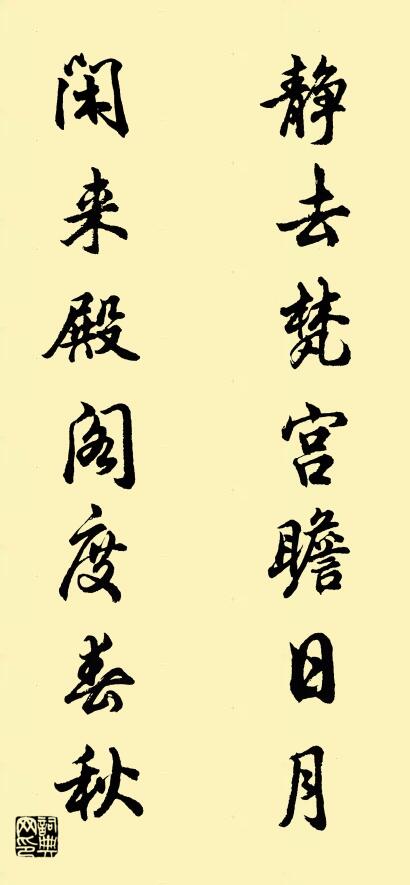 静去梵宫瞻日月
闲来殿阁度春秋
词典网印